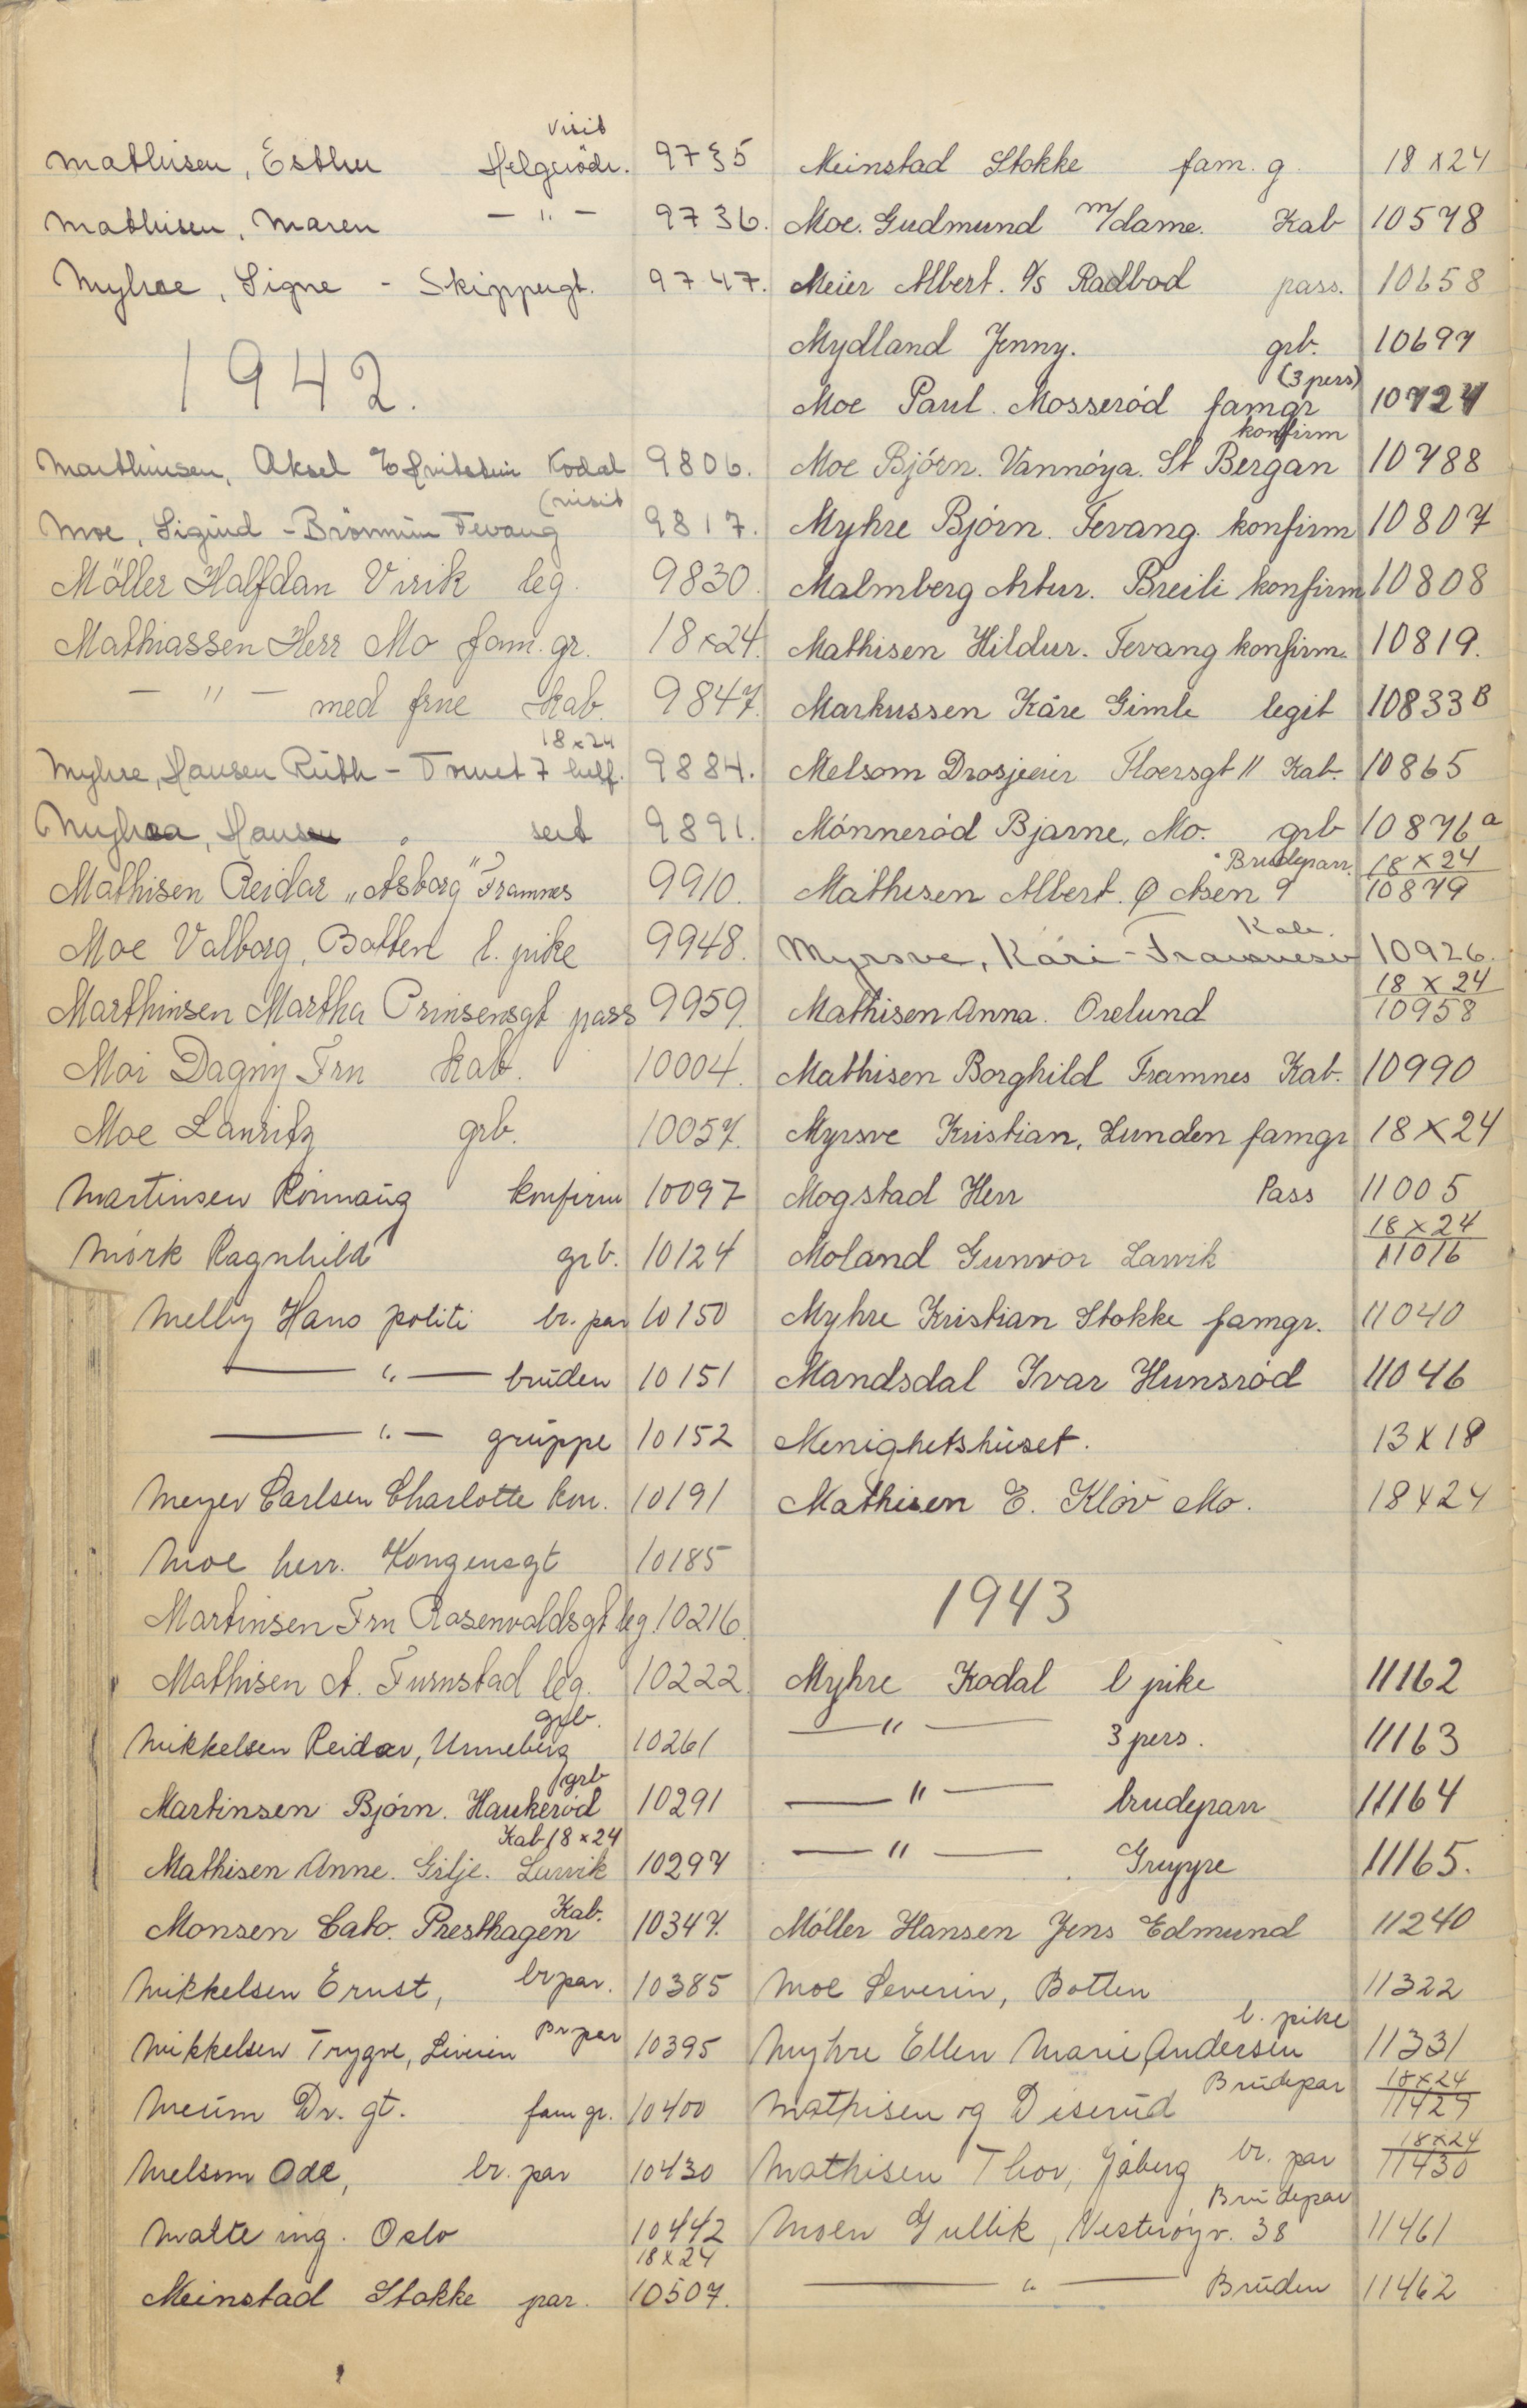 Visit
Mathisen, Esther Helgerödv. 9735
Mathisen, Maren — " — 9736.
Myhre, Signe - Skippergt. 9747.
1942.
Marthinsen, Aksel Kodal 9806.
(visit
Moe, Sigurd - Brönnum Fevang 9817.
Möller Halfdan Virik leg. 9830.
Mathiassen Herr Mo fam. gr. 18x24.
— " — med frue Kab. 9847.
18x24
Myhre, Hansen Ruth - Tornet 7 9884.
Myhre, Hansen " 9891.
Mathisen Reidar „Asborg" Framnes 9910.
Moe Valborg, Botten l. pike 9948.
Marthinsen Martha Prinsensgt pass 9959.
Moi Dagny Fru Kab. 10004.
Moe Lauritz grb. 10057.
Martinsen Rönnaug konfirm 10097
Mörk Ragnhild grb. 10124
Melby Hans politi br. par 10150
— " — bruden 10151
— " — gruppe 10152
Meyer Carlsen Charlotte kon. 10191
Moe herr. Kongensgt 10185
Martinsen Fru Rosenvoldsgt leg. 10216.
Mathisen A. Furustad leg. 10222.
grb.
Mikkelsen Reidar, Unneberg 10261
grb
Martinsen Bjórn. Haukeród 10291
Kab 18x24
Mathisen Anne. Gilje. Larvik 10297
Kab.
Monsen Cato. Presthagen 10347.
Mikkelsen Ernst, br par. 10385
Mikkelsen Trygve, Br par 10395
Meum Dr. gt. fam gr. 10400
Melsom Odd, br. par 10430
Malte ing. Oslo 10442
18x24
Meinstad Stokke par. 10507.
Meinstad Stokke fam. g 18x24
Moe. Gudmund m/dame. Kab 10578
Meier Albert. S/S Radbod pass. 10658
Mydland Jenny. grb. 10697
(3 pers)
Moe Paul. Mosseród famgr 10727
konfirm
Moe Bjórn. Vannóya. St Bergan 10788
Myhre Bjórn. Fevang. konfirm 10807
Malmberg Artur. Breili konfirm 10808
Mathisen Hildur. Fevang konfirm. 10819.
Markussen Kåre Gimle legit 10833B
Melsom Drosjeeier Floersgt 11 Kab. 10865
Mónneród Bjarne, Mo. grb 10876a
Brudeparr. 18x24
Mathisen Albert. Ø Åsen 9 10879
Kab.
Myrsve, Kåri - Framnesv 10926.
18x24
Mathisen Anna. Orelund 10958
Mathisen Borghild Framnes Kab. 10990
Myrsve Kristian, Lunden famgr 18x24
Mogstad Herr Pass 11005
18x24
Moland Gunvor Larvik 11016
Myhre Kristian Stokke famgr. 11040
Mandsdal Ivar Hunsród 11046
Menighetshuset. 13x18
Mathisen E. Klóv Mo. 18x24
1943
Myhre Kodal l pike 11162
— " — 3 pers. 11163
— " — brudeparr 11164
— " — Gruppe 11165.
Móller Hansen Jens Edmund 11240
Moe Severin, Botten 11322
l. pike
Myhre Ellen Marie Andersen 11331
Brudepar 18x24
Mathisen og Diserud 11429
18x24
Mathisen Thor, Jåberg br. par 11430
Brudepar
Moen Gullik, Vesteróyv. 38 11461
— " — Bruden 11462